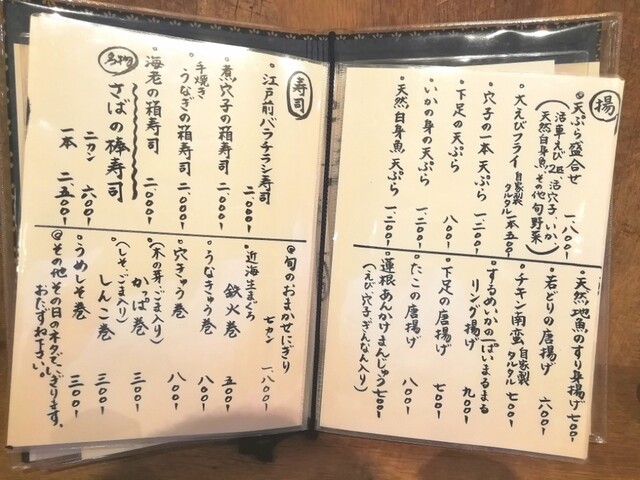 揚
◎天ぷら盛合せ 一、八〇〇ー
(活車えび2匹、活穴子、いか、
天然白身魚、その他 旬野菜)
・大えびフライ 自家製タルタル 一本 五〇〇ー
・穴子の一本天ぷら 一、二〇〇ー
・下足の天ぷら 八〇〇ー
・いかの身の天ぷら 一、二〇〇ー
・天然白身魚天ぷら 一、二〇〇ー
・天然地魚のすり身揚げ 七〇〇ー
・若どりの唐揚げ 六〇〇ー
・チキン南蛮 自家製タルタル 七〇〇ー
・するめいかの一ぱいまるまる
リング揚げ 九〇〇ー
・下足の唐揚げ 七〇〇ー
・たこの唐揚げ 八〇〇ー
・蓮根あんかけまんじゅう 七〇〇ー
(えび、穴子、ぎんなん入り)
寿司
・江戸前バラチラシ寿司 二、〇〇〇ー
・煮穴子の箱寿司 二、〇〇〇ー
・手焼き
うなぎの箱寿司 二、〇〇〇ー
・海老の箱寿司 二、〇〇〇ー
名物
さばの棒寿司
二カン 六〇〇ー
一本 二、五〇〇ー
◎旬のおまかせにぎり
七カン 一、八〇〇ー
・近海生まぐろ
鉄火巻 五〇〇ー
・うなきゅう巻 八〇〇ー
・穴きゅう巻 八〇〇ー
・(木の芽、ごま入り)
かっぱ巻 三〇〇ー
・(しそ、ごま入り)
しんこ巻 三〇〇ー
・うめしそ巻 三〇〇ー
◎その他その日のネタで、にぎります。
おたずね下さい。